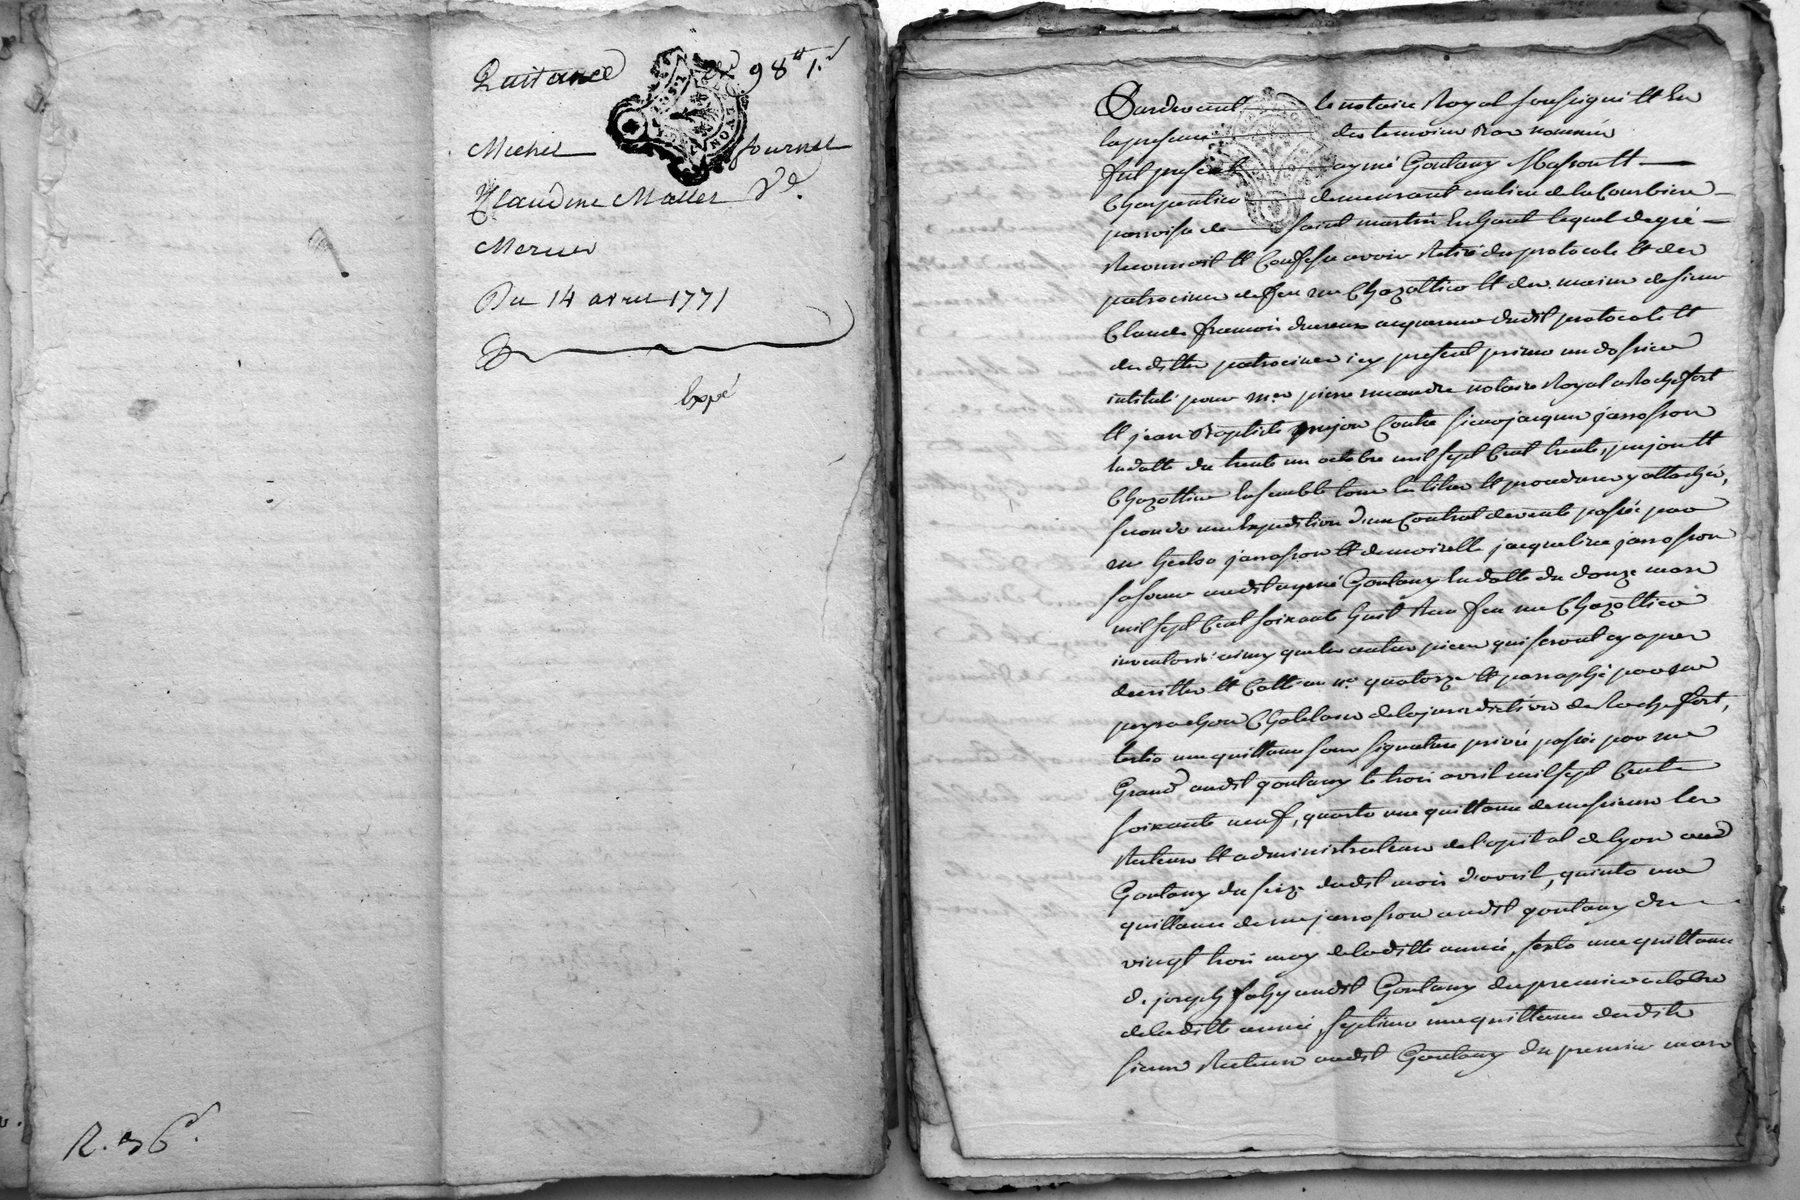 Quittance de 98tt 1s
Michel fournel
Claudine Mallet Ve.
Mercier
Du 14 avril 1771
Expé
R. 36s.
Pardevant le notaire Royal soussigné Et En
la presence des temoins Bas nommés
fut present aymé Goutany Masson Et
Charpentier demeurant au lieu de la Courbiere
parroisse de saint martin En haut lequel de gré
Reconnoit Et Confesse avoir Retiré du protocole Et des
patrocines de feu me Chazottier Et des mains de sieur
Claude françois acquereur dudit protocole Et
desdittes patrocines icy present primo un dossier
intitulé pour mes pierre notaire Royal a Rochefort
Et jean Baptiste prejon Contre sieur jacques jarrosson
En datte du trente un octobre mil sept Cent trente, prejon Et
Chazottier Ensemble tous les titres Et procedures y attachés,
secondo une Expedition d'un Contrat de vente passée par
me hector jarrosson Et demoiselle jacqueline jarrosson
sa soeur audit aymé Goutany En datte du douze mars
mil sept Cent soixante huit Reçu feu me Chazottier
inventorié ainsy que les autres pieces qui seront cy apres
decrittes Et Cotté au no. quatorze Et parraphé par me
peyrachon Chatelain de la jurisdiction de Rochefort,
tertio une quittance sous signature privée passée par me
Grand audit goutany le trois avril mil sept Cent
soixante neuf, quarto une quittance de messieurs les
Recteurs Et administrateurs de l'opital de lyon aud
Goutany du seize dudit mois d'avril, quinto une
quittance de me jarrosson audit goutany du
vingt trois may de laditte année, sexto une quittance
de joseph audit Goutany du premier octobre
de laditte année, septimo une quittance desdits
sieurs Recteurs audit Goutany du premier mars